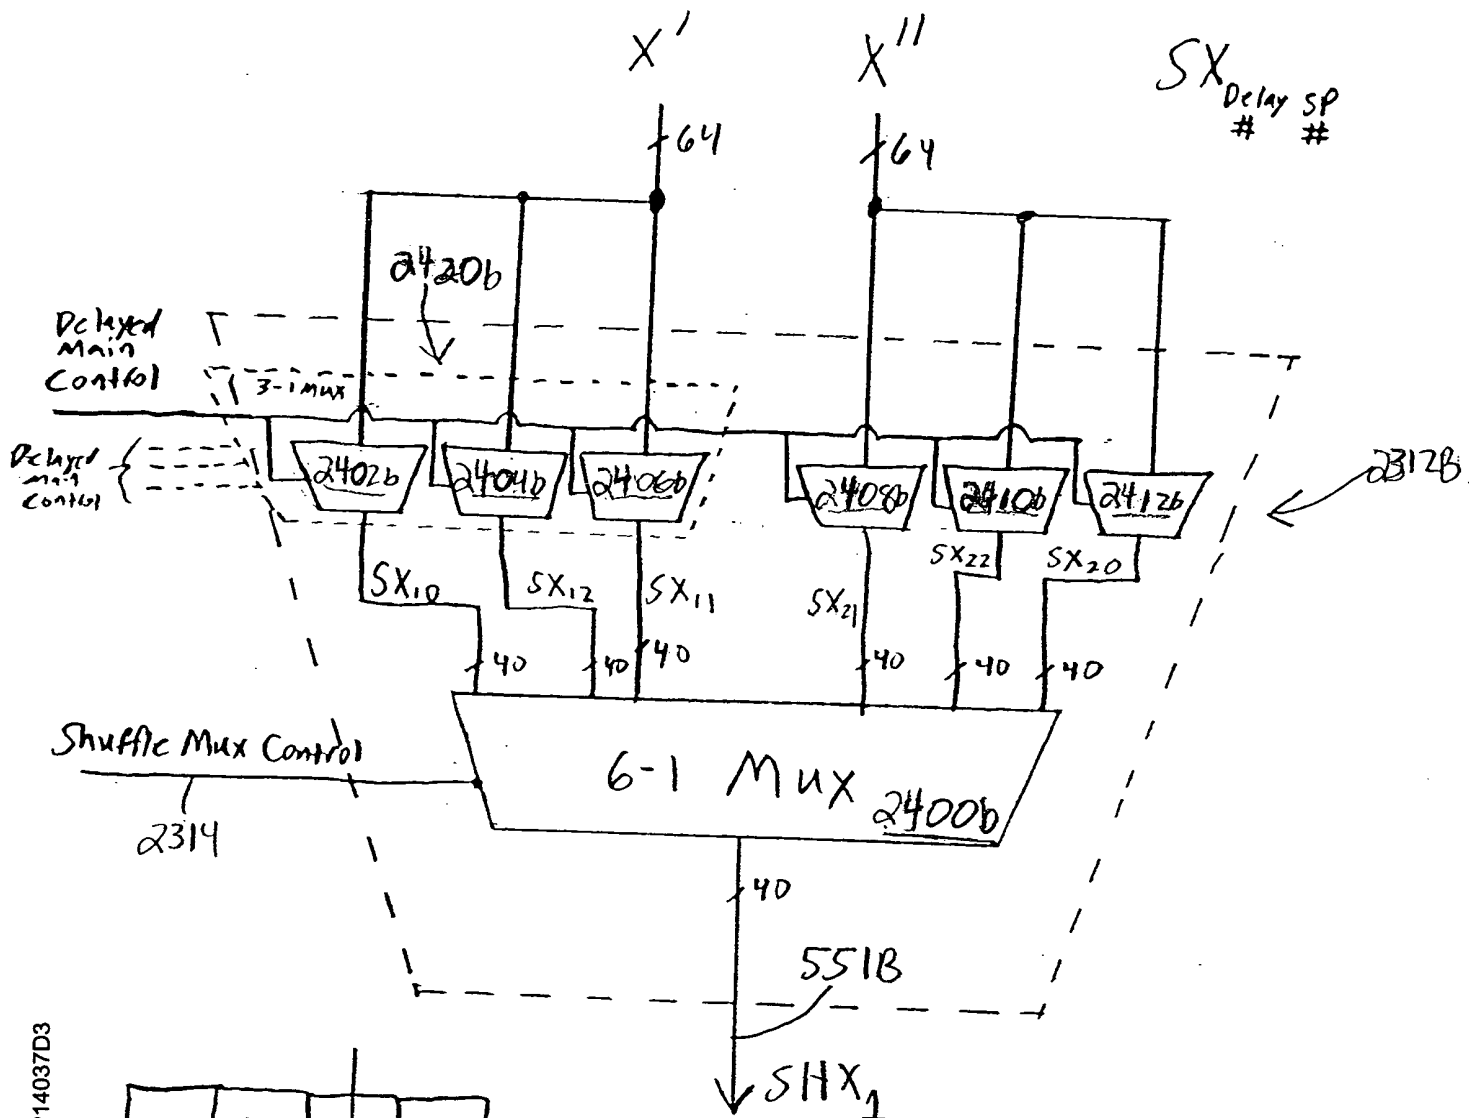 X' X'' SX Delay SP
# #
64 64
2420b
Delayed
Main
Control
3-1 Mux
Delayed
Main
Control
2402b 2404b 2406b 2408b 2410b 2412b
2312B
SX10 SX12 SX11 SX21 SX22 SX20
40 40 40 40 40 40
Shuffle Mux Control
6-1 Mux
2400b
2314
40
551B
SHX1
14037D3